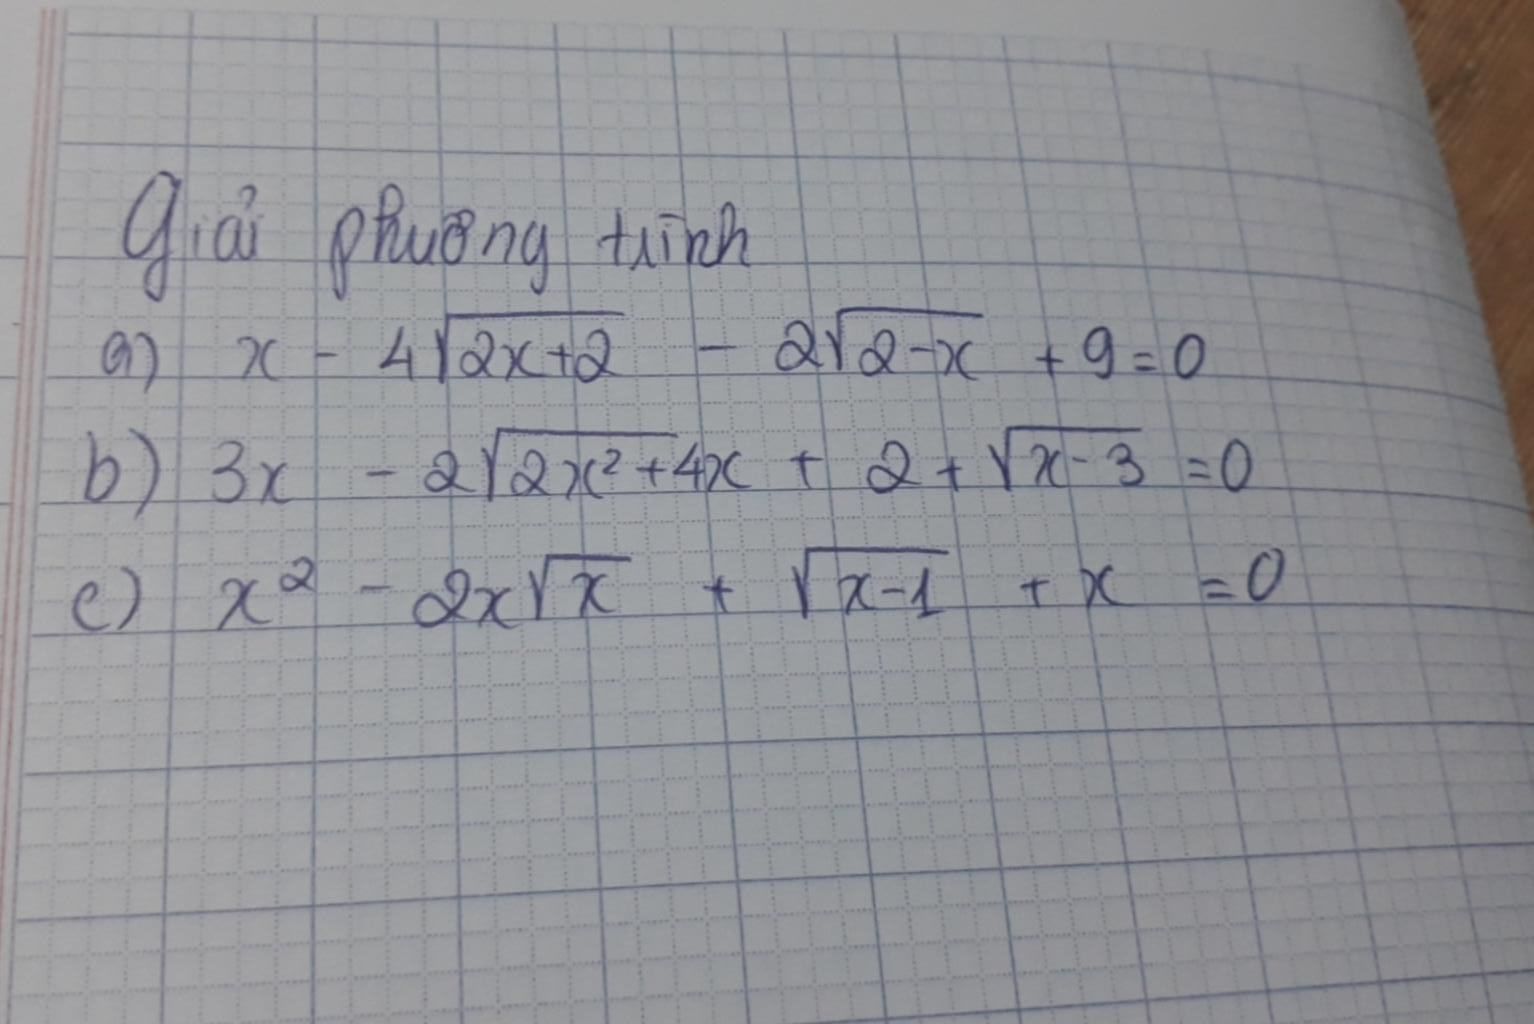 Giải phương trình
a) x - 4√(2x+2) - 2√(2-x) + 9 = 0
b) 3x - 2√(2x²+4x) + 2 + √(x-3) = 0
c) x² - 2x√x + √(x-1) + x = 0